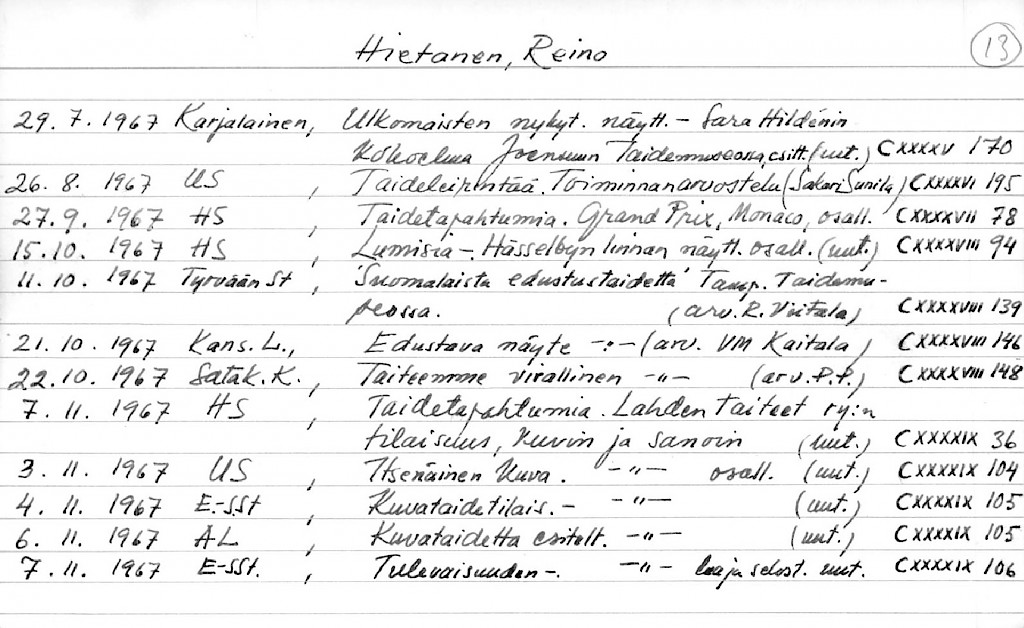 Hietanen, Reino
13
29. 7. 1967 Karjalainen, Ulkomaisten nykyt. näytt. - Sara Hildénin
kokoelma Joensuun Taidemuseossa, esitt. (uut.) CXXXXV 170
26. 8. 1967 US , Taideleirintää. Toiminnanarvostelu (Sakari Sunila) CXXXXVI 195
27. 9. 1967 HS , Taidetapahtumia. Grand Prix, Monaco, osall. CXXXXVII 78
15. 10. 1967 HS , Lumisia - Hässelbyn linnan näytt. osall. (uut.) CXXXXVIII 94
11. 10. 1967 Tyrvään St , "Suomalaista edustustaidetta" Tamp. Taidemu-
seossa. (arv. R. Viitala) CXXXXVIII 139
21. 10. 1967 Kans. L., Edustava näyte -"- (arv. VM Kaitala) CXXXXVIII 146
22. 10. 1967 Satak. K. , Taiteemme virallinen -"- (arv. P.P.) CXXXXVIII 148
7. 11. 1967 HS , Taidetapahtumia. Lahden Taiteet ry:n
tilaisuus, kuvin ja sanoin (uut.) CXXXXIX 36
3. 11. 1967 US , Itsenäinen kuva. -"- osall. (uut.) CXXXXIX 104
4. 11. 1967 E.-SSt , Kuvataidetilais. - -"- (uut.) CXXXXIX 105
6. 11. 1967 AL , Kuvataidetta esitelt. -"- (uut.) CXXXXIX 105
7. 11. 1967 E-SSt. , Tulevaisuuden -. -"- laaja selost. uut. CXXXXIX 106